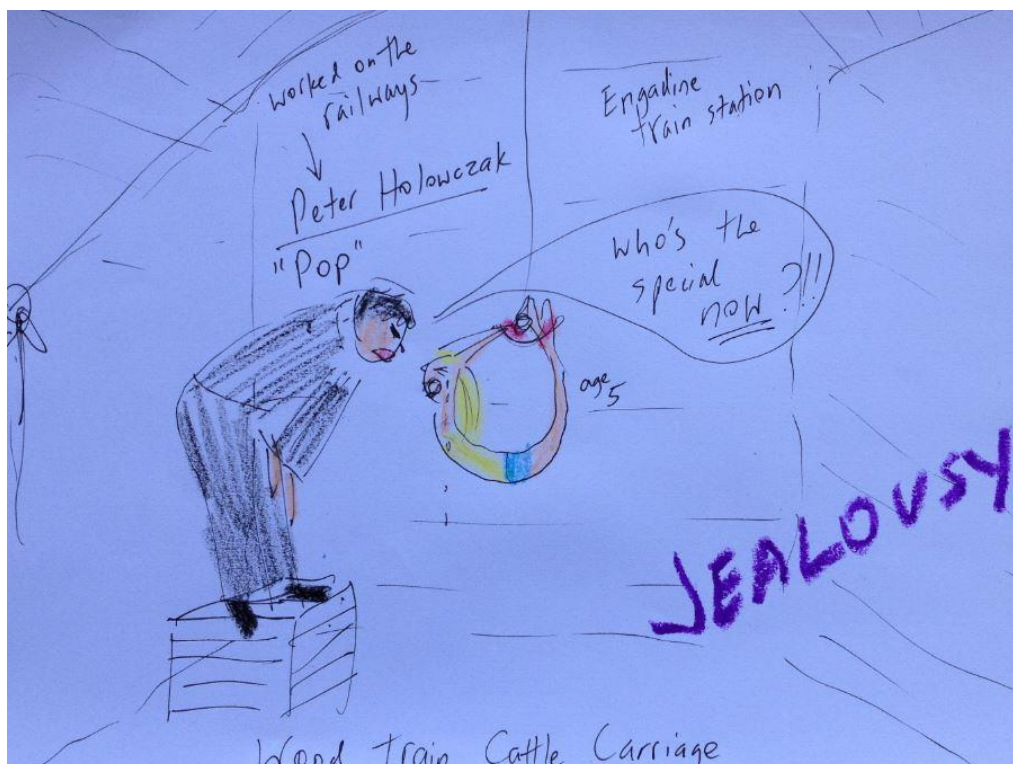 worked on the
railways
Peter Holowczak
"Pop"
Engadine
train station
who's the
special
now?!!
age
5
JEALOUSY
Wood Train Cattle Carriage